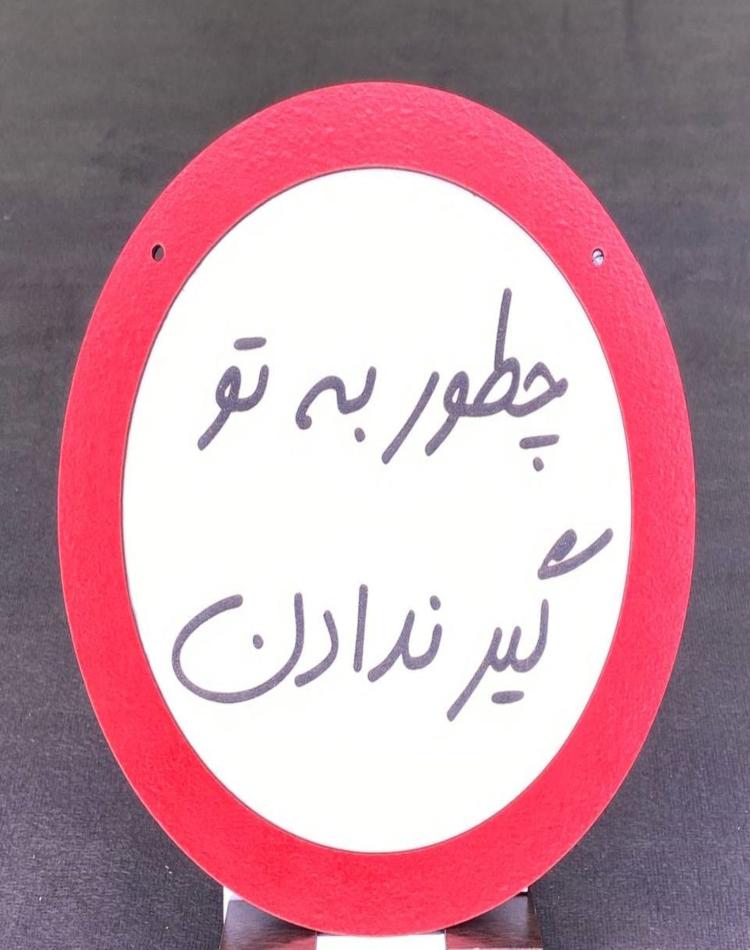 چطور به تو
گیر ندادن